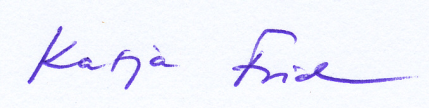 Katja Frid